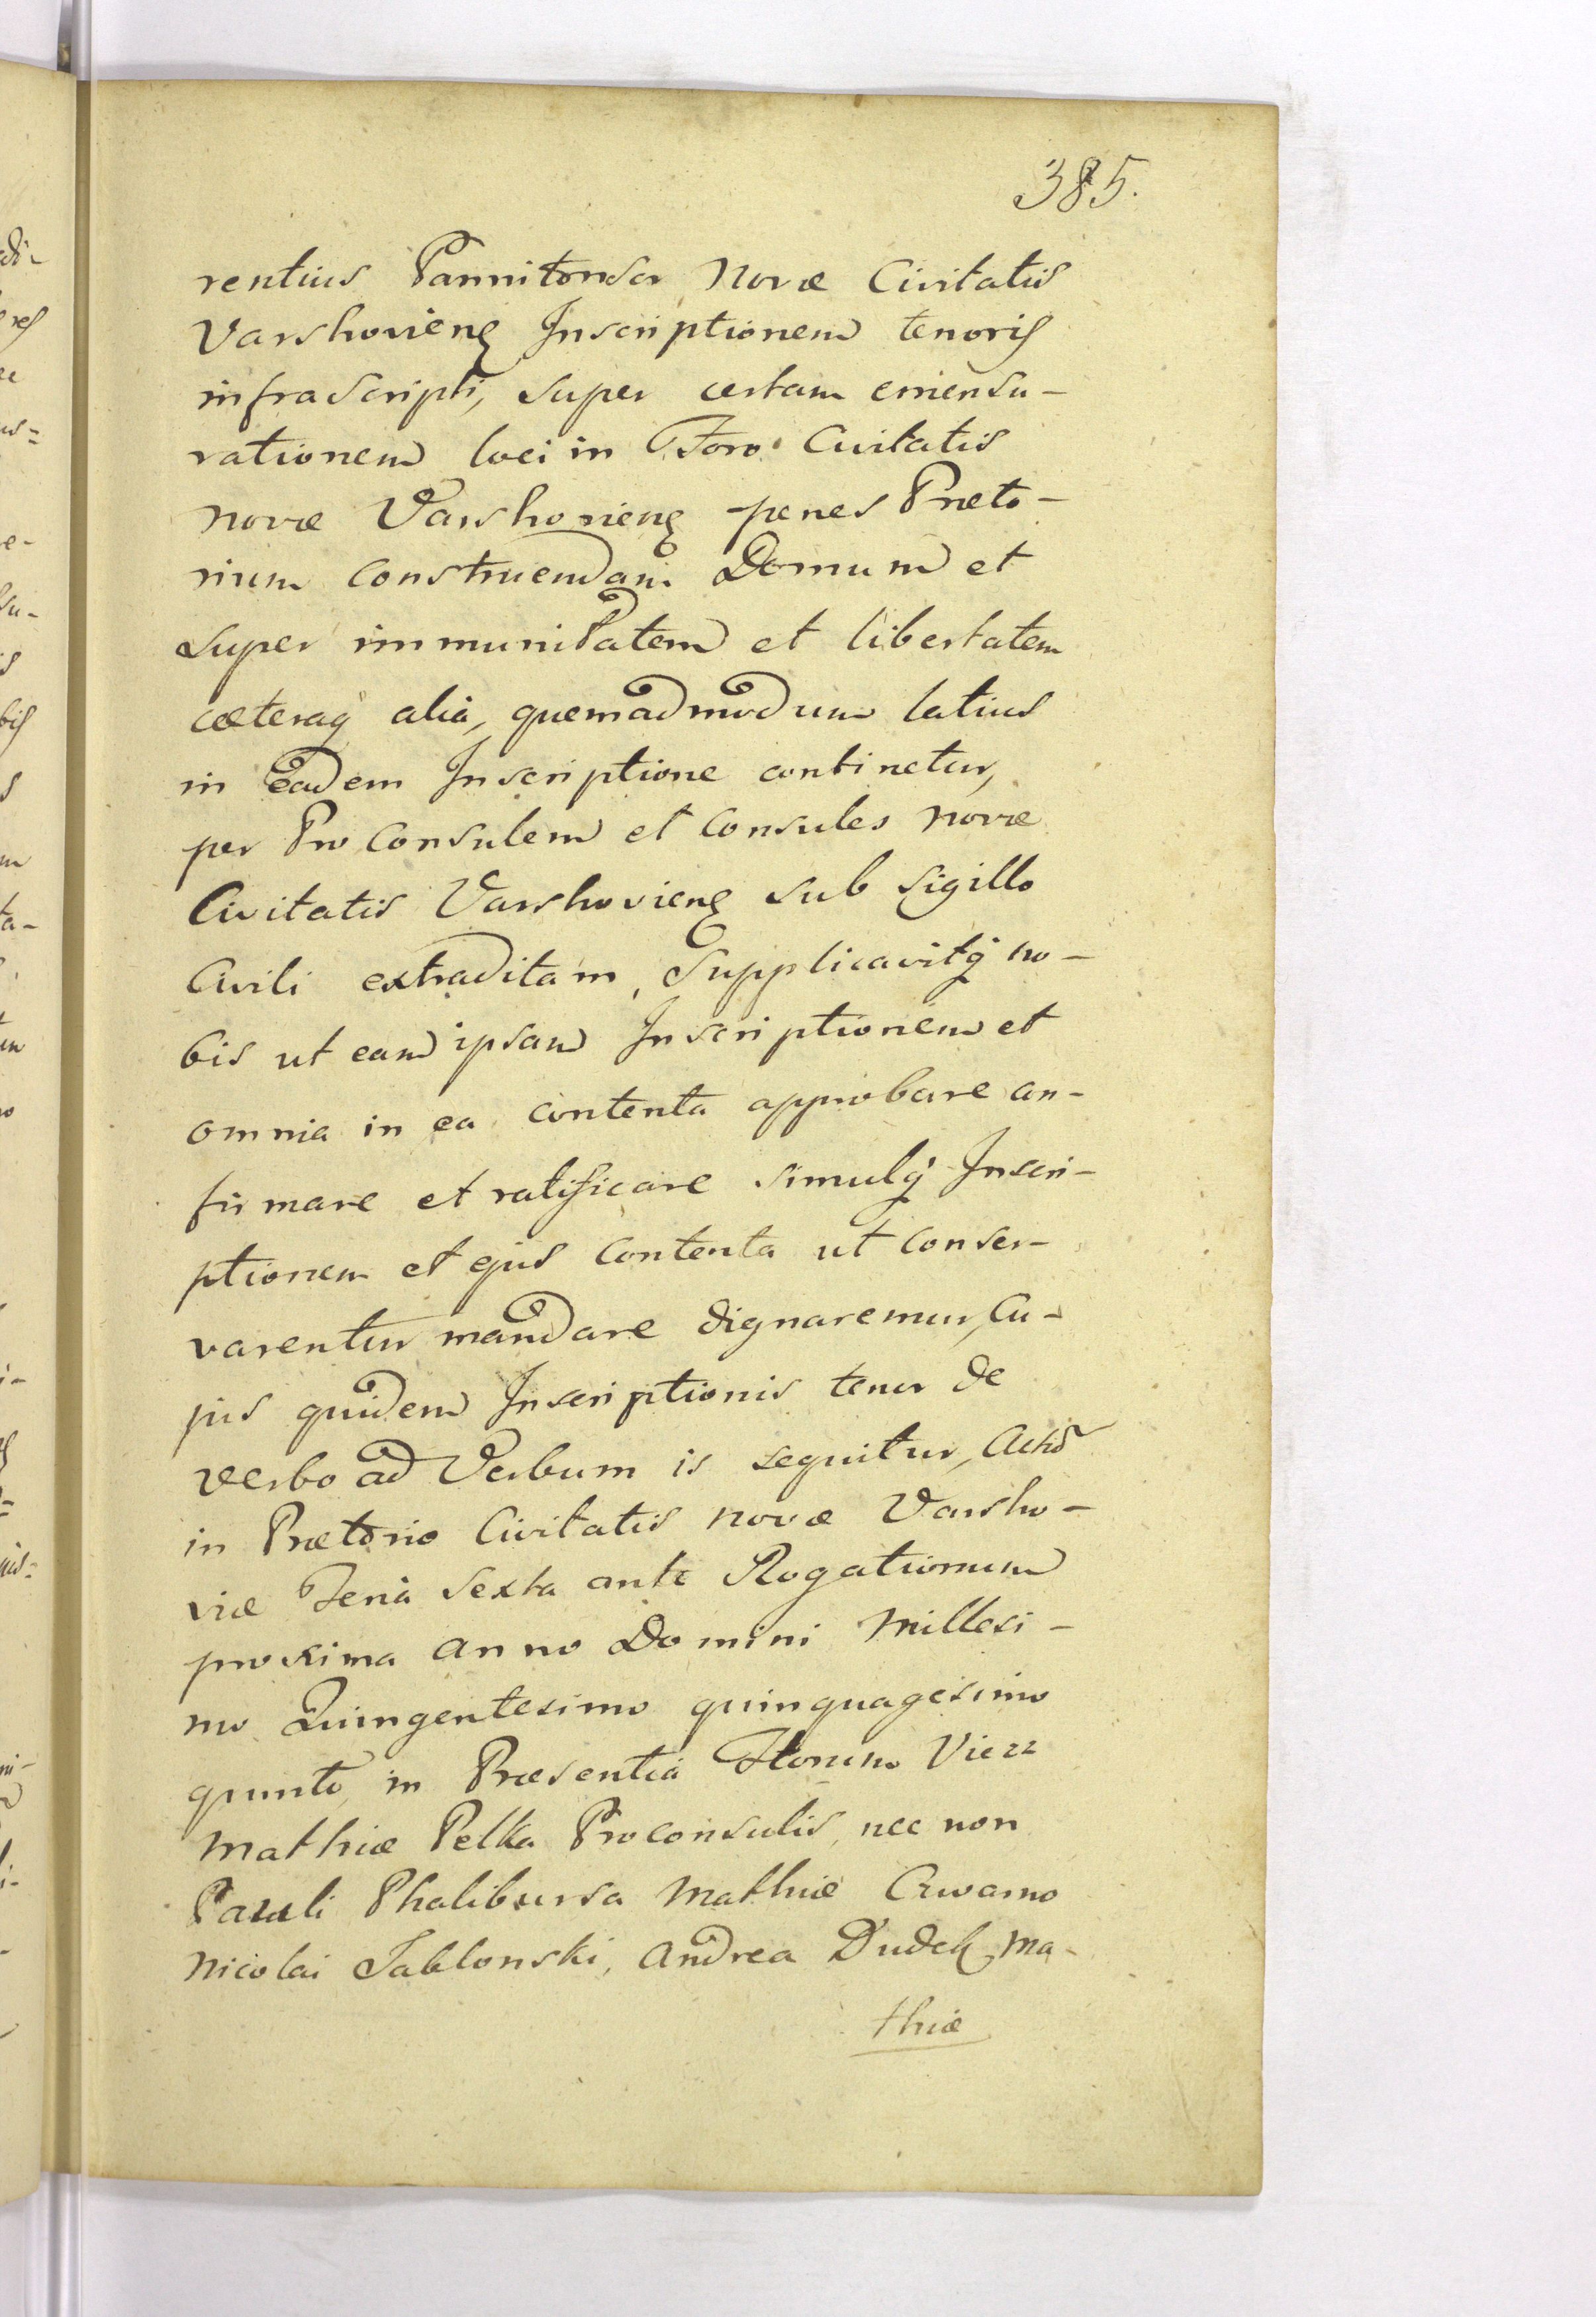 385.
rentius Pannitonsor Novæ Civitatis
Varshovieng Inscriptionem tenoris
infrascripti, super certam emensu-
rationem loci in Foro Civitatis
Novæ Varshovieng penes Præto-
rium construendam Domum et
super immunitatem et libertatem
cæteraq alia, quemadmodum latius
in eadem Inscriptione continetur,
per Pro Consulem et Consules Novæ
Civitatis Varshovieng sub sigillo
Civili extraditam, Supplicavitq no-
bis ut eam ipsam Inscriptionem et
omnia in ea contenta approbare con-
firmare et ratificare simulq Inscri-
ptionem et ejus contenta ut conser-
varentur mandare dignaremur, Cu-
jus quidem Inscriptionis tenor de
verbo ad Verbum is sequitur, Actũ
in Prætorio Civitatis novæ Varsho-
viæ Feria Sexta ante Rogationum
proxima anno Domini Millesi-
mo Quingentesimo quinquagesimo
quinto, in Præsentia Honim
Mathiæ Pelka Proconsulis, nec non
Pauli Phalibursa Mathiæ
Nicolai Jablonski, Andrea Dudek, Ma-
thiæ